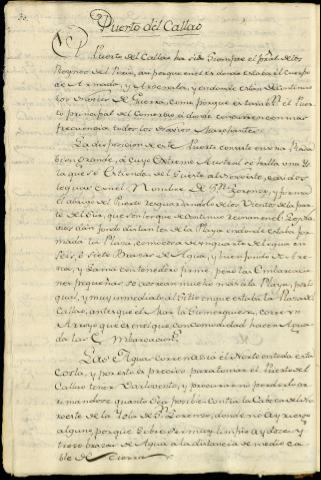 Puerto del Callao
El Puerto del Callao ha sido siempre el pral. de los
Reynos del Peru, asi porque en el es donde estaba el Cuerpo
de Armada, y Arsenala, y en donde estan de continuo
los Navios de Guerra, como porque es tambn. el Puer-
to principal del Comercio à donde concurren con mas
frecuencia todos los Navios Marchantes.
La disposicion de este Puerto consiste en una Ba
bien Grande, à cuyo extremo Austral se halla una Ys
la que se extiende del Sueste al Noroeste, cassi dos
leguas con el Nombre de Sn. Lorenzo, y forma
el abrigo del Puerto resguardandolo de los Vientos de la par-
te del Sur, que son los que de continuo reinan en el. Los Na-
vios dàn fondo distantes de la Playa en donde estaba for-
mada la Plaza, como cosa de un quarto de legua en
seis, ò siete Brazas de Agua, y buen fondo de Are-
na, y Lama con tenedero firme, pero las Embarcacio-
nes pequeñas se acercan mucho mas à la Playa, por lo
qual, y muy inmediato al sitio en que estaba la Plaza del
Callao, antes que el Mar la sumerguese, corre un
Arroyo que es en el que con comodidad hacen Agua-
da las Embarcacions.
Las Aguas corren assi à el Norte en toda esta
Costa, y por esto es preciso para tomar el Puerto del
Callao tener Barlovento, y procurar no perderlo ar-
rimandose quanto sea posible contra la Cabeza del No-
roeste de la Ysla de Sn. Lorenzo, donde no ay riesgo
alguno, porque sobre ser muy limpio ay doce, y
trece brazas de Agua à la distancia de medio ca-
ble de Tierra